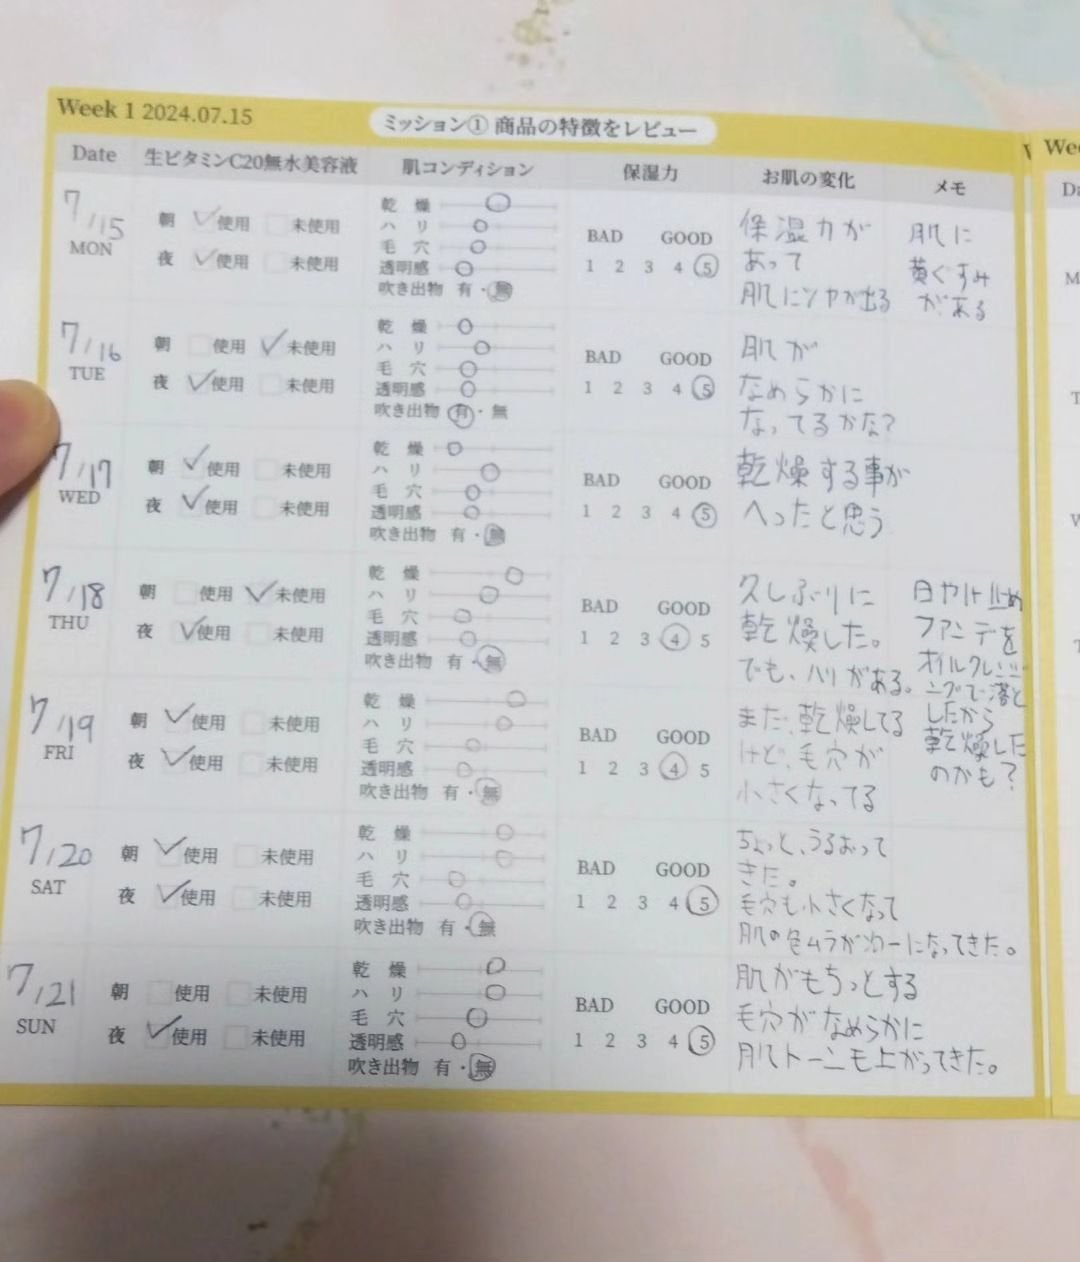 Week 1 2024.07.15
ミッション① 商品の特徴をレビュー
Date 生ビタミンC20無水美容液 肌コンディション 保湿力 お肌の変化 メモ
7/15
MON
朝 使用 未使用
夜 使用 未使用
乾燥
ハリ
毛穴
透明感
吹き出物 有・無
BAD GOOD
1 2 3 4 5
保湿力が
あって
肌にツヤが出る
肌に
黄ぐすみ
がある
7/16
TUE
朝 使用 未使用
夜 使用 未使用
乾燥
ハリ
毛穴
透明感
吹き出物 有・無
BAD GOOD
1 2 3 4 5
肌が
なめらかに
なってるかな?
7/17
WED
朝 使用 未使用
夜 使用 未使用
乾燥
ハリ
毛穴
透明感
吹き出物 有・無
BAD GOOD
1 2 3 4 5
乾燥する事が
へったと思う
7/18
THU
朝 使用 未使用
夜 使用 未使用
乾燥
ハリ
毛穴
透明感
吹き出物 有・無
BAD GOOD
1 2 3 4 5
久しぶりに
乾燥した。
でも、ハリがある。
日やけ止め
ファンデを
オイルクレンジ
ングで落と
したから
乾燥した
のかも?
7/19
FRI
朝 使用 未使用
夜 使用 未使用
乾燥
ハリ
毛穴
透明感
吹き出物 有・無
BAD GOOD
1 2 3 4 5
まだ、乾燥してる
けど、毛穴が
小さくなってる
7/20
SAT
朝 使用 未使用
夜 使用 未使用
乾燥
ハリ
毛穴
透明感
吹き出物 有・無
BAD GOOD
1 2 3 4 5
ちょっと、うるおって
きた。
毛穴も小さくなって
肌の色ムラが均一になってきた。
7/21
SUN
朝 使用 未使用
夜 使用 未使用
乾燥
ハリ
毛穴
透明感
吹き出物 有・無
BAD GOOD
1 2 3 4 5
肌がもちっとする
毛穴がなめらかに
肌てトーンも上がってきた。